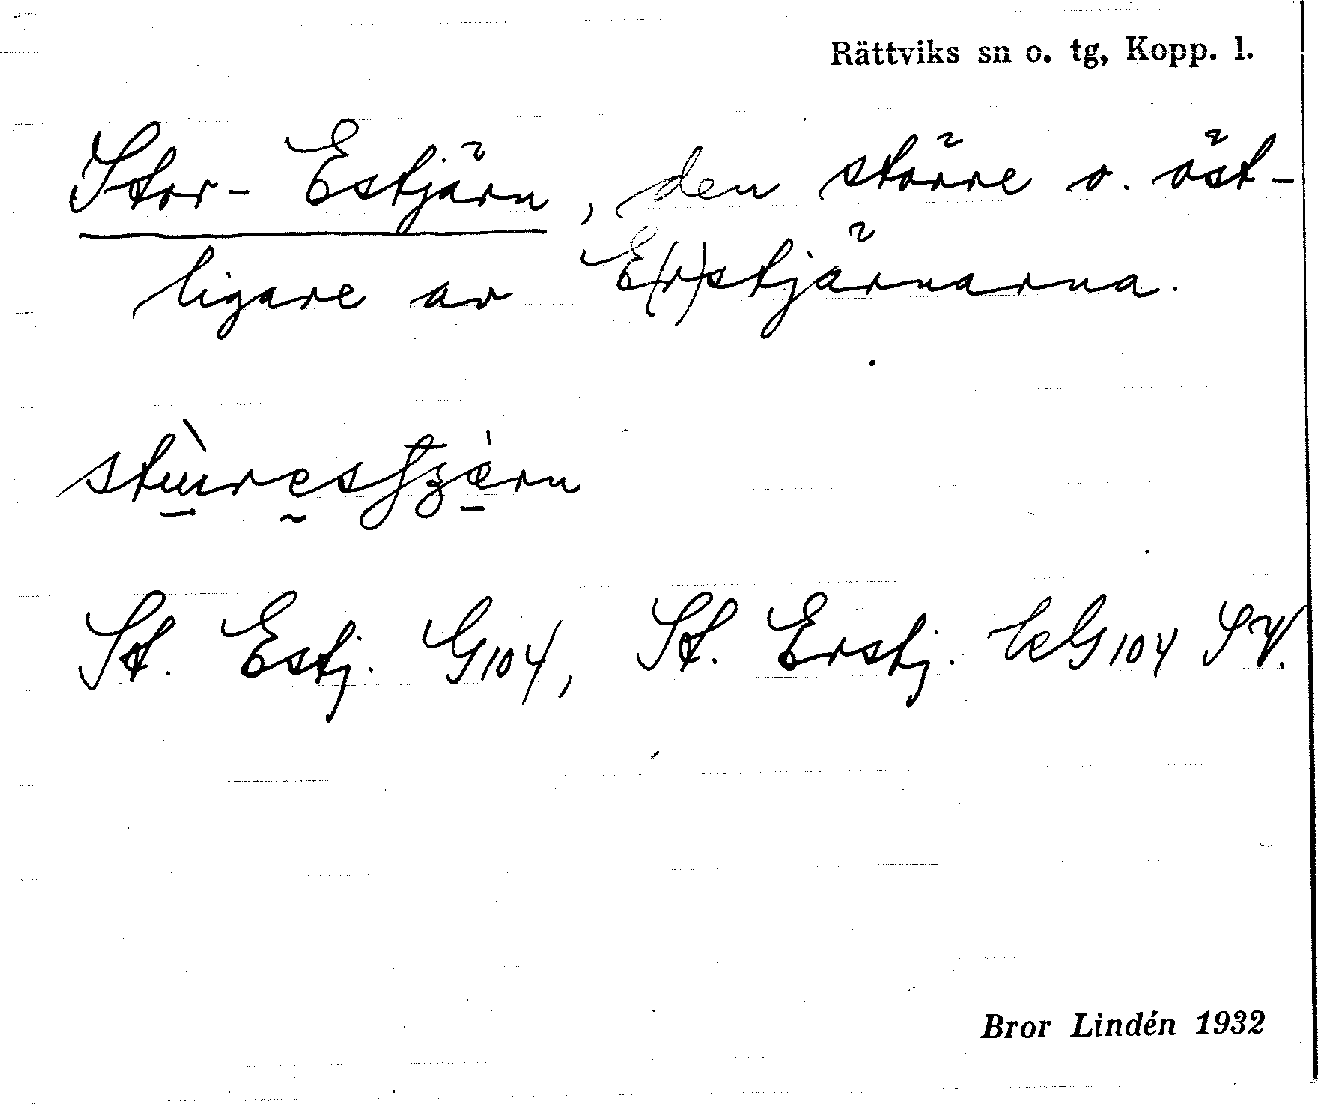 Rättviks sn o. tg, Kopp. l.
Stor-Estjärn, den större o. öst-
ligare av E(r)stjärnarna.
St. Estj. G104, St. Erstj. G104 SV.
Bror Lindén 1932